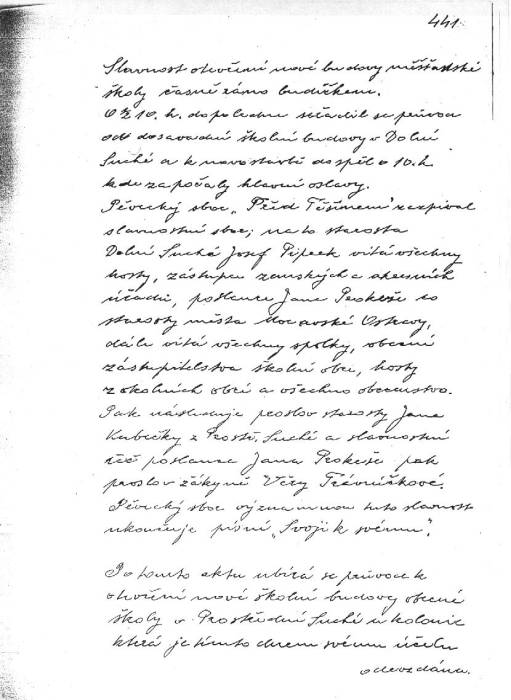 441.
Slavnost otevření nové budovy měšťanské
školy časně ráno budíčkem.
O ½ 10. h. dopoledne seřadil se průvod
od dosavadní školní budovy v Dolní
Suché a k novostavbě dospěl o 10. h.
kde započaly hlavní oslavy.
Pěvecký sbor „Před Těšínem" zazpíval
slavnostní sbor; na to starosta
Dolní Suchá Josef Pipeek vítá všechny
hosty, zástupce zemských a okresních
úřadů, poslance Jana Prokeše co
starosty města Moravské Ostravy,
dále vítá všechny spolky, obecní
zastupitelstva školní obce, hosty
z okolních obcí a všechno obecenstvo.
Pak následuje proslov starosty Jana
Kubečky z Prostř. Suché a slavnostní
řeč poslance Jana Prokeše pak
proslov žákyně Věry Trávníčkové.
Pěvecký sbor významnou tuto slavnost
ukončuje písní „Svoji k svému".
Po tomto aktu ubírá se průvod k
otevření nové školní budovy obecné
školy v Prostřední Suché u kolonie
která je tímto dnem svému účelu
odevzdána.